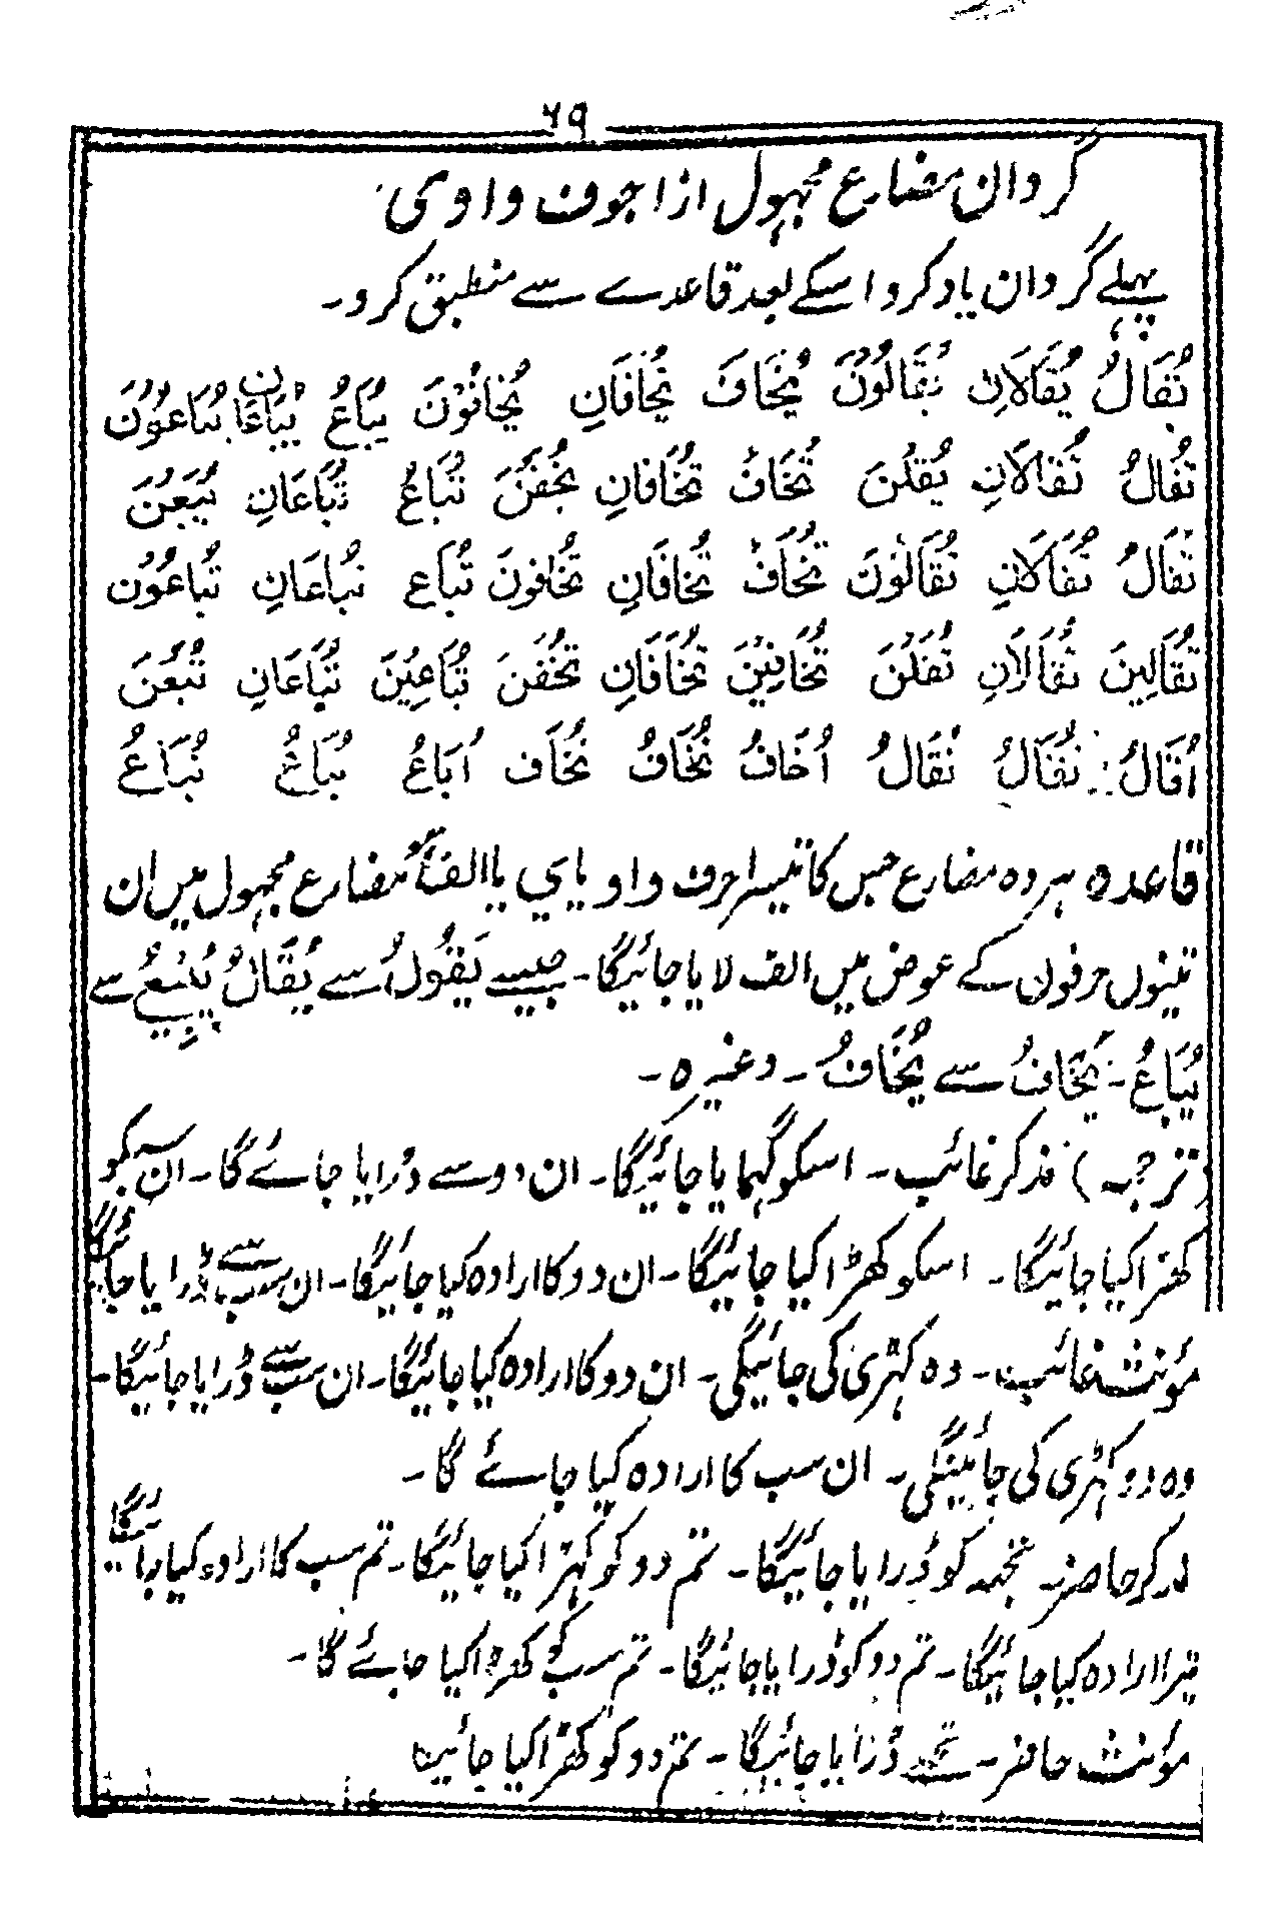 ٦٩
گردان مضارع مجہول از اجوف واوی
پہلے گردان یاد کرو اسکے بعد قاعدے سے منطبق کرو۔
يُقَالُ يُقَالَانِ يُقَالُوْنَ يُخَافُ يُخَافَانِ يُخَافُوْنَ يُبَاعُ يُبَاعَانِ يُبَاعُوْنَ
تُقَالُ تُقَالَانِ يُقَلْنَ تُخَافُ تُخَافَانِ يُخَفْنَ تُبَاعُ تُبَاعَانِ يُبَعْنَ
تُقَالُ تُقَالَانِ تُقَالُوْنَ تُخَافُ تُخَافَانِ تُخَافُونَ تُبَاع تُبَاعَانِ تُبَاعُوْنَ
تُقَالِينَ تُقَالَانِ تُقَلْنَ تُخَافِيْنَ تُخَافَانِ تُخَفْنَ تُبَاعِيْنَ تُبَاعَانِ تُبَعْنَ
اُقَالُ نُقَالُ نُقَالُ اُخَافُ نُخَافُ نُخَاف اُبَاعُ نُبَاعُ نُبَاعُ
قاعدہ ہر وہ مضارع جس کا تیسرا حرف واو یا ي یا الف ہو مضارع مجہول میں ان
تینوں حرفوں کے عوض میں الف لایا جائیگا۔ جیسے يَقُولُ سے يُقَالُ يَبِيعُ سے
يُبَاعُ۔ يَخَافُ سے يُخَافُ۔ وغیرہ۔
(ترجمہ) مذکر غائب۔ اسکو گہمایا جائیگا۔ ان دو سے ڈرایا جائے گا۔ ان سبکو
کھڑا کیا جائیگا۔ اسکو کھڑا کیا جائیگا۔ ان دو کا ارادہ کیا جائیگا۔ ان سب سے ڈرایا جائیگا
مؤنث غائب۔ وہ کہڑی کی جائیگی۔ ان دو کا ارادہ کیا جائیگا۔ ان سب سے ڈرایا جائیگا۔
وہ دو کہڑی کی جائینگی۔ ان سب کا ارادہ کیا جائے گا۔
مذکر حاضر۔ تجھہ کو ڈرایا جائیگا۔ تم دو کو کہڑا کیا جائیگا۔ تم سب کا ارادہ کیا جائیگا
تیرا ارادہ کیا جائیگا۔ تم دو کو ڈرایا جائیگا۔ تم سب کو کھڑا کیا جائے گا۔
مؤنث حاضر۔ تجھہ سے ڈرایا جائیگا۔ تم دو کو کھڑا کیا جائیگا